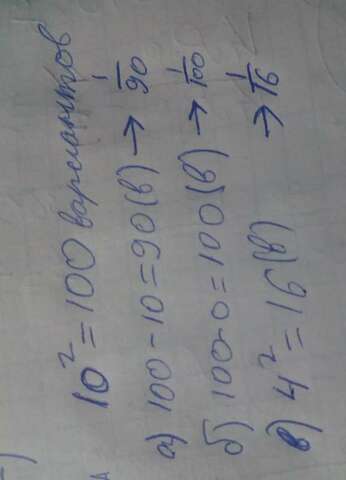 10² = 100 вариантов
а) 100 - 10 = 90 (в) → 1/90
б) 100 - 0 = 100 (в) → 1/100
в) 4² = 16 (в) → 1/16